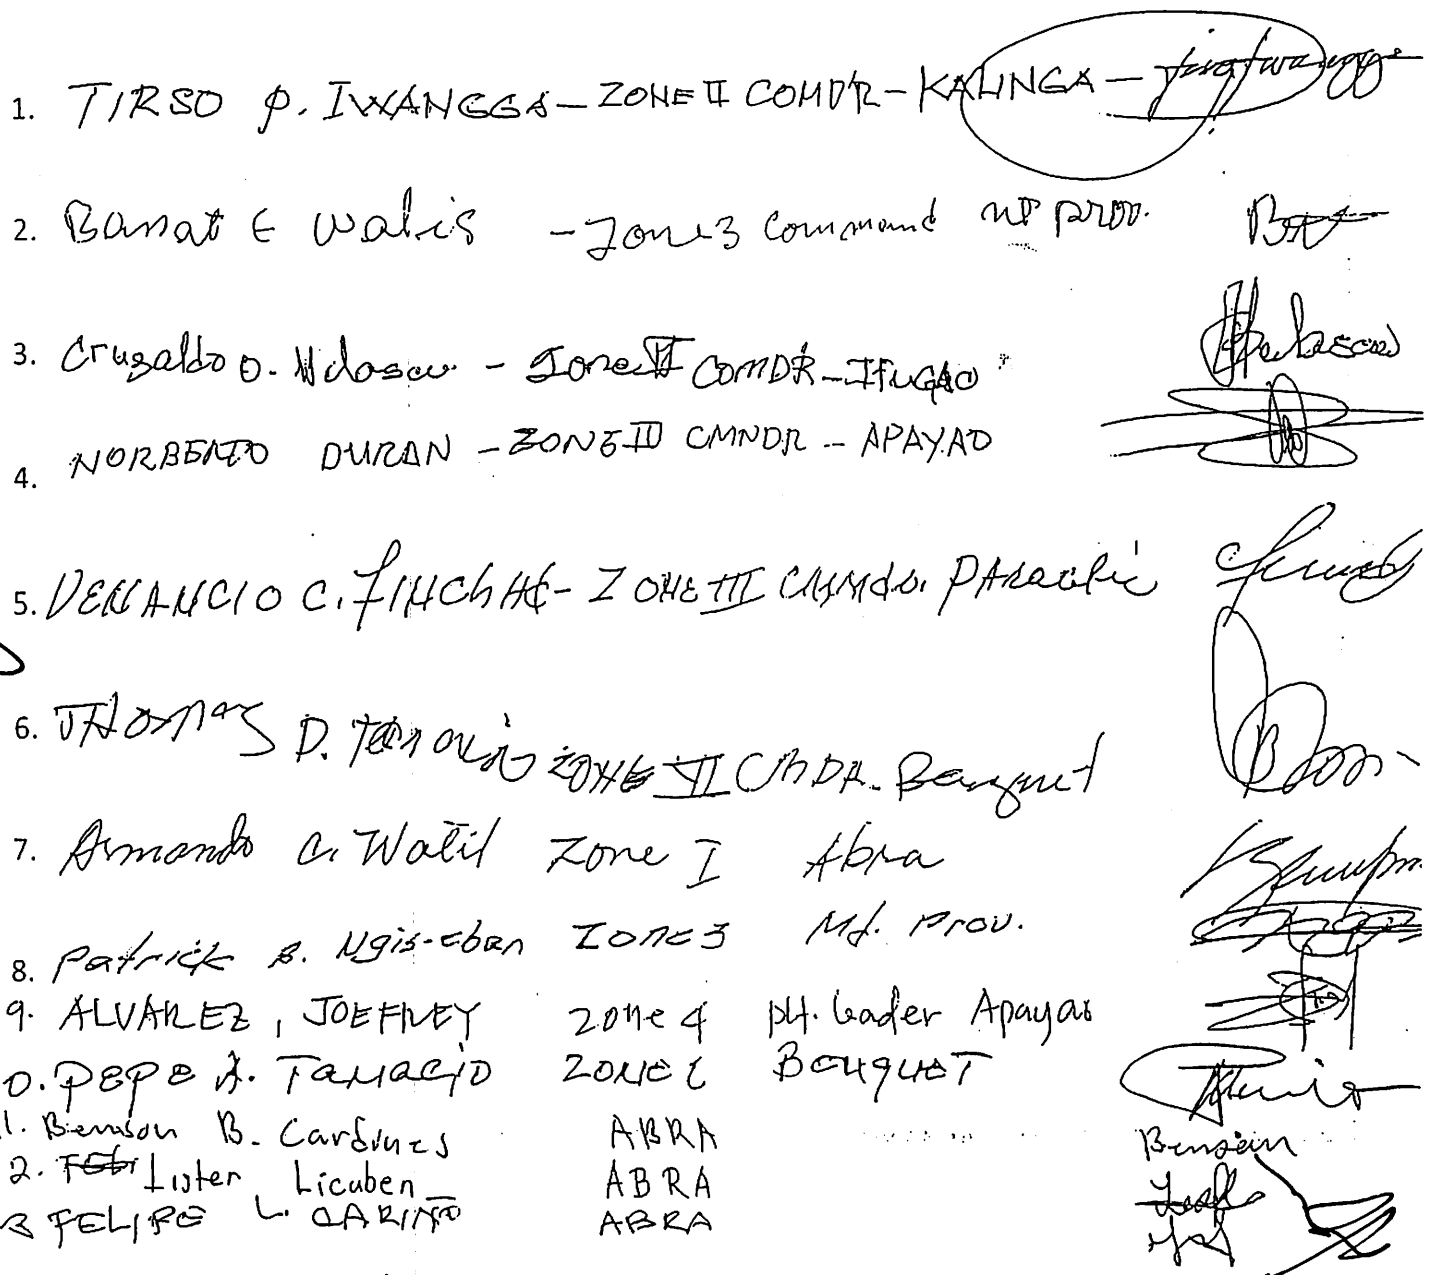 1. TIRSO P. IWANGGA – ZONE II COMDR – KALINGA –
2. Banat E Walis – Zone 3 Command Mt prov.
3. Cruzaldo O. Velasco – Zone COMDR – IFUGAO
4. NORBERTO DURAN – ZONE III CMNDR – APAYAO
5. VENANCIO C. – ZONE III CMMDR.
6. THOMAS D. ZONE VI CMDR. Benguet
7. Armando C. Watil Zone I Abra
8. Patrick B. Ngis-eban Zone 3 Mt. Prov.
9. ALVAREZ, JOEFFREY Zone 4 plt. leader Apayao
0. PEPE A. TAMACIO ZONE BENGUET
1. Benson B. Cardenes ABRA Benson
2. Lister Licuben ABRA
3 FELIPE L. CARIÑO ABRA